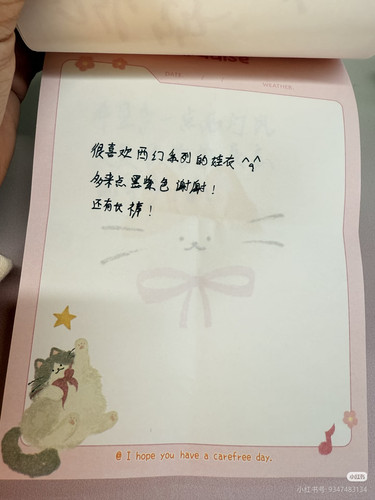 DATE
WEATHER
很喜欢西幻系列的娃衣 ^q^
多来点黑紫色谢谢!
还有长裤!
@ I hope you have a carefree day.
小红书
小红书号: 9347483134